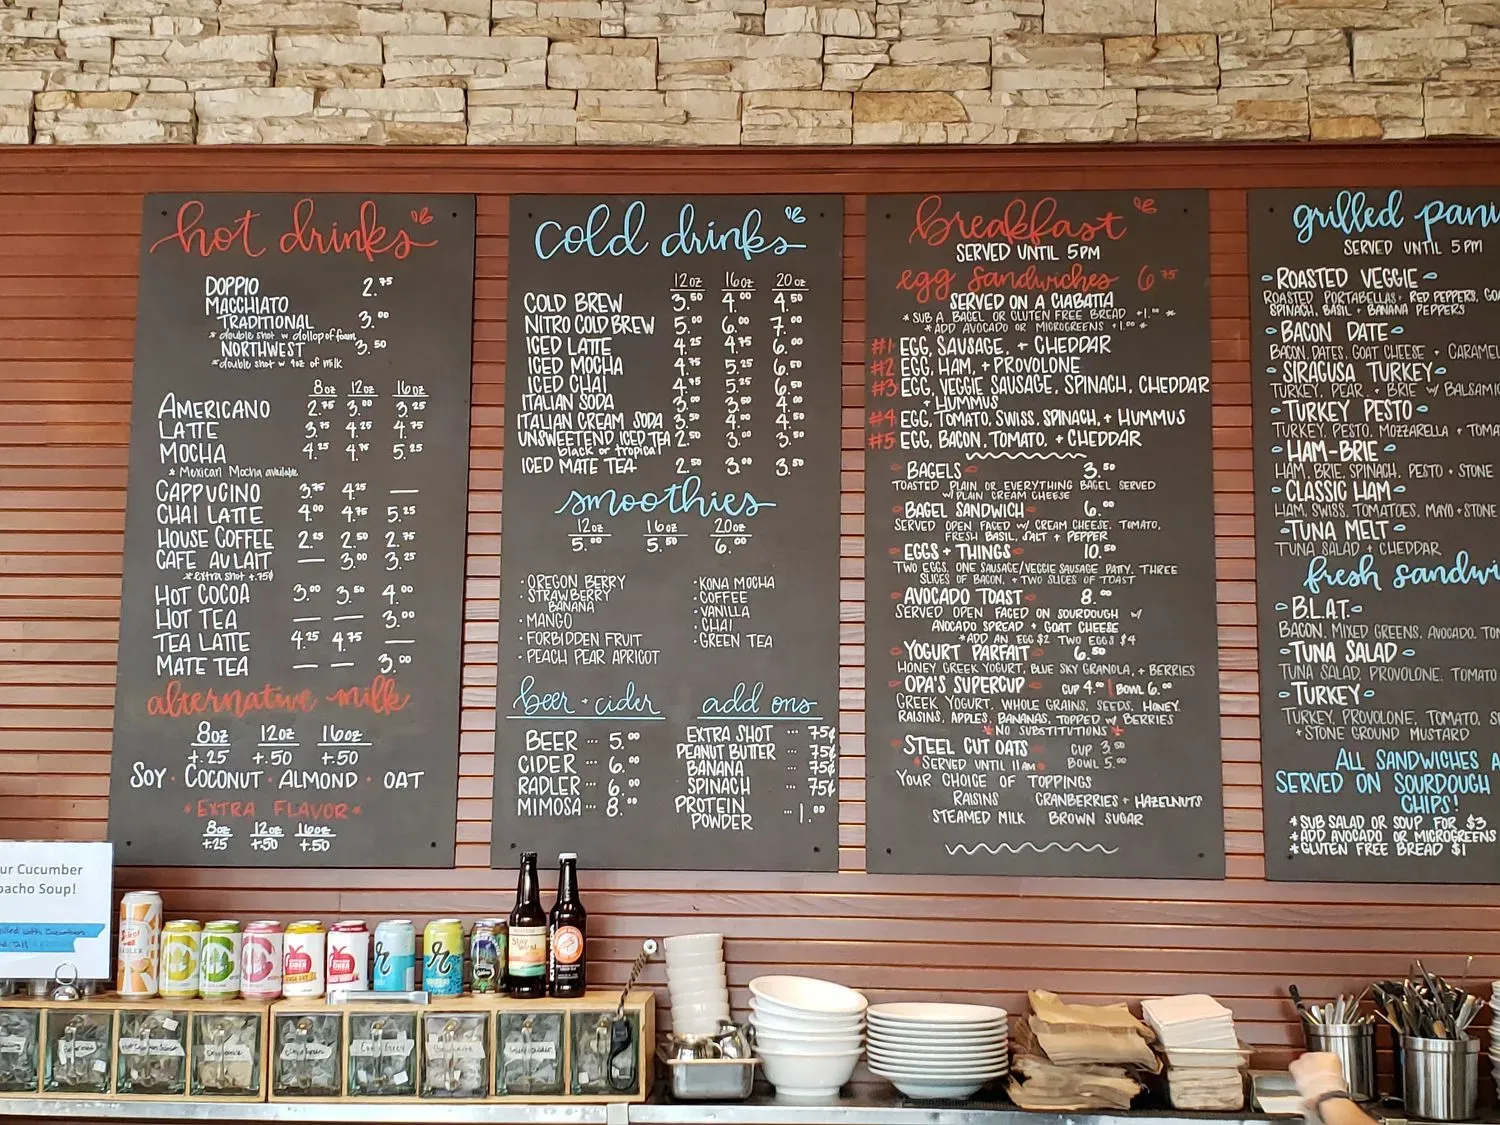 hot drinks
DOPPIO 2.75
MACCHIATO
TRADITIONAL 3.00
*double shot w dollop of foam
NORTHWEST 3.50
*double shot w 4oz of milk
8oz 12oz 16oz
AMERICANO 2.75 3.00 3.25
LATTE 3.75 4.25 4.75
MOCHA 4.25 4.75 5.25
* Mexican Mocha available
CAPPUCINO 3.75 4.25 —
CHAI LATTE 4.00 4.75 5.25
HOUSE COFFEE 2.25 2.50 2.75
CAFE AU LAIT — 3.00 3.25
*extra shot +.75¢
HOT COCOA 3.00 3.50 4.00
HOT TEA — — 3.00
TEA LATTE 4.25 4.75 —
MATE TEA — — 3.00
alternative milk
8oz 12oz 16oz
+.25 +.50 +.50
SOY · COCONUT · ALMOND · OAT
*EXTRA FLAVOR*
8oz 12oz 16oz
+.25 +.50 +.50
cold drinks
12oz 16oz 20oz
COLD BREW 3.50 4.00 4.50
NITRO COLD BREW 5.00 6.00 7.00
ICED LATTE 4.25 4.75 6.00
ICED MOCHA 4.75 5.25 6.50
ICED CHAI 4.75 5.25 6.50
ITALIAN SODA 3.00 3.50 4.00
ITALIAN CREAM SODA 3.50 4.00 4.50
UNSWEETEND ICED TEA 2.50 3.00 3.50
black or tropical
ICED MATE TEA 2.50 3.00 3.50
smoothies
12oz 16oz 20oz
5.00 5.50 6.00
· OREGON BERRY
· STRAWBERRY
BANANA
· MANGO
· FORBIDDEN FRUIT
· PEACH PEAR APRICOT
· KONA MOCHA
· COFFEE
· VANILLA
· CHAI
· GREEN TEA
beer + cider
BEER ... 5.00
CIDER ... 6.00
RADLER ... 6.00
MIMOSA ... 8.00
add ons
EXTRA SHOT ... 75¢
PEANUT BUTTER ... 75¢
BANANA ... 75¢
SPINACH ... 75¢
PROTEIN ... 1.00
POWDER
breakfast
SERVED UNTIL 5PM
egg sandwiches 6.75
SERVED ON A CIABATTA
* SUB A BAGEL OR GLUTEN FREE BREAD +1.00 *
*ADD AVOCADO OR MICROGREENS +1.00 *
#1 EGG, SAUSAGE, + CHEDDAR
#2 EGG, HAM, + PROVOLONE
#3 EGG, VEGGIE SAUSAGE, SPINACH, CHEDDAR
+ HUMMUS
#4 EGG, TOMATO, SWISS, SPINACH, + HUMMUS
#5 EGG, BACON, TOMATO, + CHEDDAR
BAGELS 3.50
TOASTED PLAIN OR EVERYTHING BAGEL SERVED
W/ PLAIN CREAM CHEESE
BAGEL SANDWICH 6.00
SERVED OPEN FACED W/ CREAM CHEESE, TOMATO,
FRESH BASIL, SALT + PEPPER
EGGS + THINGS 10.50
TWO EGGS, ONE SAUSAGE/VEGGIE SAUSAGE PATTY, THREE
SLICES OF BACON, + TWO SLICES OF TOAST
AVOCADO TOAST 8.00
SERVED OPEN FACED ON SOURDOUGH W/
AVOCADO SPREAD + GOAT CHEESE
*ADD AN EGG $2 TWO EGGS $4
YOGURT PARFAIT 6.50
HONEY GREEK YOGURT, BLUE SKY GRANOLA, + BERRIES
OPA'S SUPERCUP CUP 4.00 | BOWL 6.00
GREEK YOGURT, WHOLE GRAINS, SEEDS, HONEY,
RAISINS, APPLES, BANANAS, TOPPED W/ BERRIES
*NO SUBSTITUTIONS*
STEEL CUT OATS CUP 3.50
*SERVED UNTIL 11AM* BOWL 5.00
YOUR CHOICE OF TOPPINGS
RAISINS CRANBERRIES + HAZELNUTS
STEAMED MILK BROWN SUGAR
grilled pani
SERVED UNTIL 5PM
- ROASTED VEGGIE -
ROASTED PORTABELLAS, RED PEPPERS, GOA
SPINACH, BASIL + BANANA PEPPERS
- BACON DATE -
BACON, DATES, GOAT CHEESE + CARAMEL
- SIRAGUSA TURKEY -
TURKEY, PEAR, + BRIE W/ BALSAMIC
- TURKEY PESTO -
TURKEY, PESTO, MOZZARELLA + TOMA
- HAM-BRIE -
HAM, BRIE, SPINACH, PESTO + STONE
- CLASSIC HAM -
HAM, SWISS, TOMATOES, MAYO + STONE
- TUNA MELT -
TUNA SALAD + CHEDDAR
fresh sandwi
- B.L.A.T. -
BACON, MIXED GREENS, AVOCADO, TOM
- TUNA SALAD -
TUNA SALAD, PROVOLONE, TOMATO
- TURKEY -
TURKEY, PROVOLONE, TOMATO, S
+ STONE GROUND MUSTARD
ALL SANDWICHES A
SERVED ON SOURDOUGH
CHIPS!
*SUB SALAD OR SOUP FOR $3
*ADD AVOCADO OR MICROGREENS
*GLUTEN FREE BREAD $1
ur Cucumber
pacho Soup!